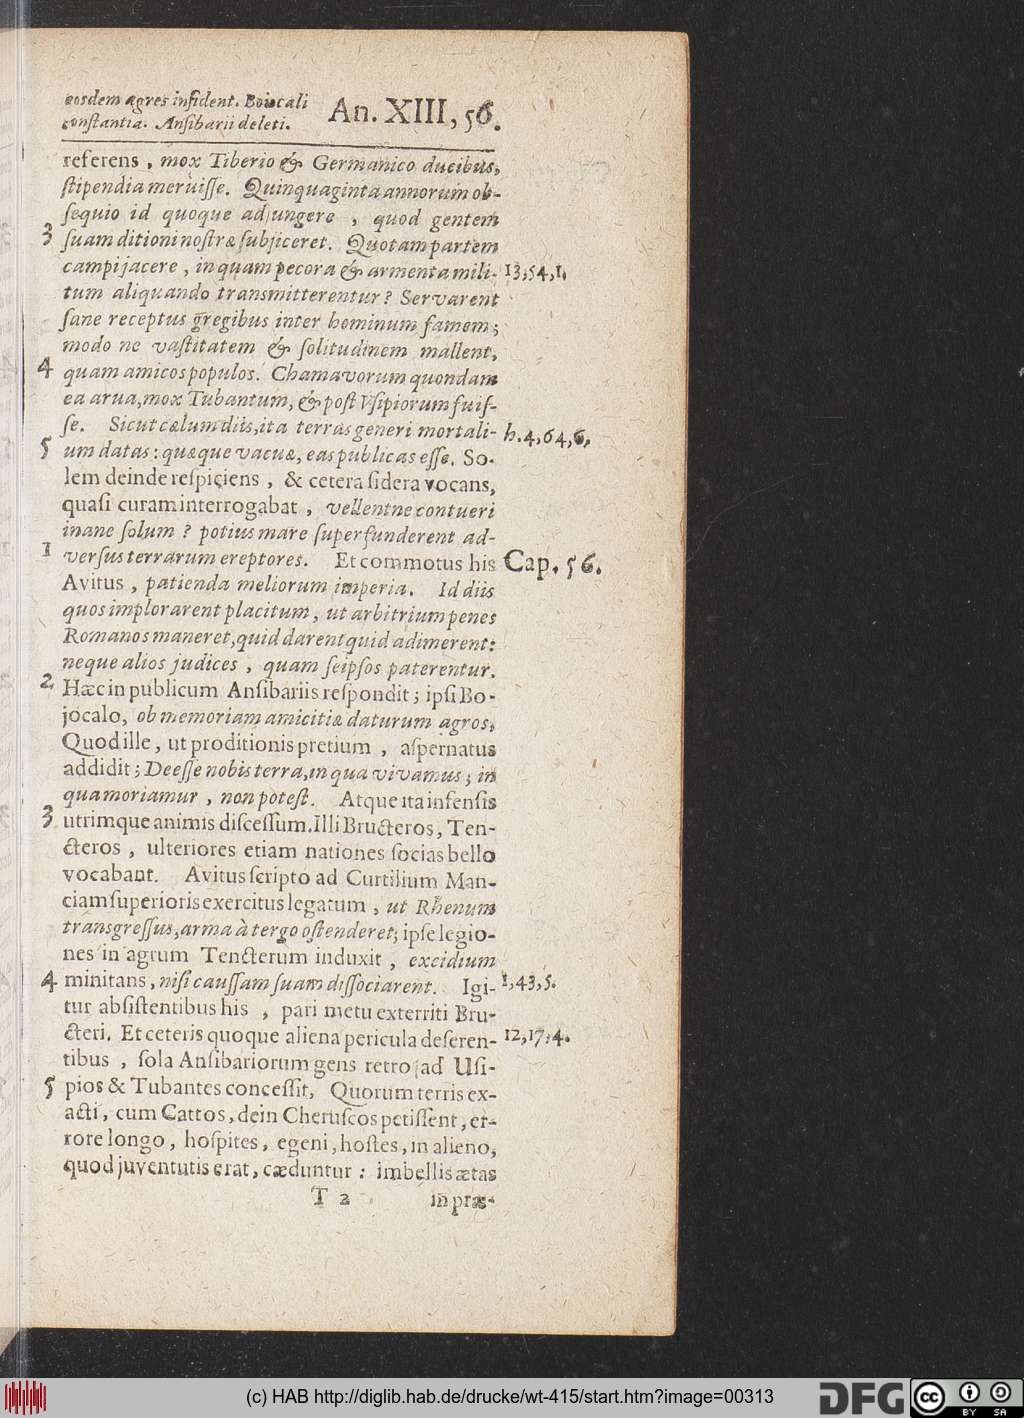 eosdem agros insident. Boiocali
constantia. Ansibarii deleti.
An. XIII, 56.
referens, mox Tiberio & Germanico ducibus,
ſtipendia meruiſſe. Quinquaginta annorum ob-
ſequio id quoque adjungere, quod gentem
3 ſuam ditioni noſtræ ſubjiceret. Quotam partem
campi jacere, in quam pecora & armenta mili- 13,54,1.
tum aliquando transmitterentur? Servarent
ſane receptus gregibus inter hominum famem;
modo ne vaſtitatem & ſolitudinem mallent,
4 quam amicos populos. Chamavorum quondam
ea arua, mox Tubantum, & poſt Vſipiorum fuiſ-
ſe. Sicut cælum diis, ita terras generi mortali- h. 4,64,6.
5 um datas: quæque vacuæ, eas publicas eſſe. So-
lem deinde reſpiciens, & cetera ſidera vocans,
quaſi curam interrogabat, vellentne contueri
inane ſolum? potius mare ſuperfunderent ad-
1 verſus terrarum ereptores. Et commotus his Cap. 56.
Avitus, patienda meliorum imperia. Id diis
quos implorarent placitum, ut arbitrium penes
Romanos maneret, quid darent quid adimerent:
neque alios judices, quam ſeipſos paterentur.
2 Hæc in publicum Anſibariis reſpondit; ipſi Bo-
jocalo, ob memoriam amicitiæ daturum agros,
Quod ille, ut proditionis pretium, aſpernatus
addidit; Deeſſe nobis terra, in qua vivamus; in
qua moriamur, non poteſt. Atque ita infenſis
3 utrimque animis diſceſſum. Illi Bructeros, Ten-
cteros, ulteriores etiam nationes ſocias bello
vocabant. Avitus ſcripto ad Curtilium Man-
ciam ſuperioris exercitus legatum, ut Rhenum
transgreſſus, arma à tergo oſtenderet; ipſe legio-
nes in agrum Tencterum induxit, excidium
4 minitans, niſi cauſſam ſuam diſſociarent. Igi- 1,43,5.
tur abſiſtentibus his, pari metu exterriti Bru-
cteri. Et ceteris quoque aliena pericula deſeren- 12,17,4.
tibus, ſola Anſibariorum gens retro ad Uſi-
5 pios & Tubantes conceſſit, Quorum terris ex-
acti, cum Cattos, dein Cheruſcos petiſſent, er-
rore longo, hoſpites, egeni, hoſtes, in alieno,
quod juventutis erat, cæduntur: imbellis ætas
T 2 in præ-
(c) HAB http://diglib.hab.de/drucke/wt-415/start.htm?image=00313
DFG
cc BY SA